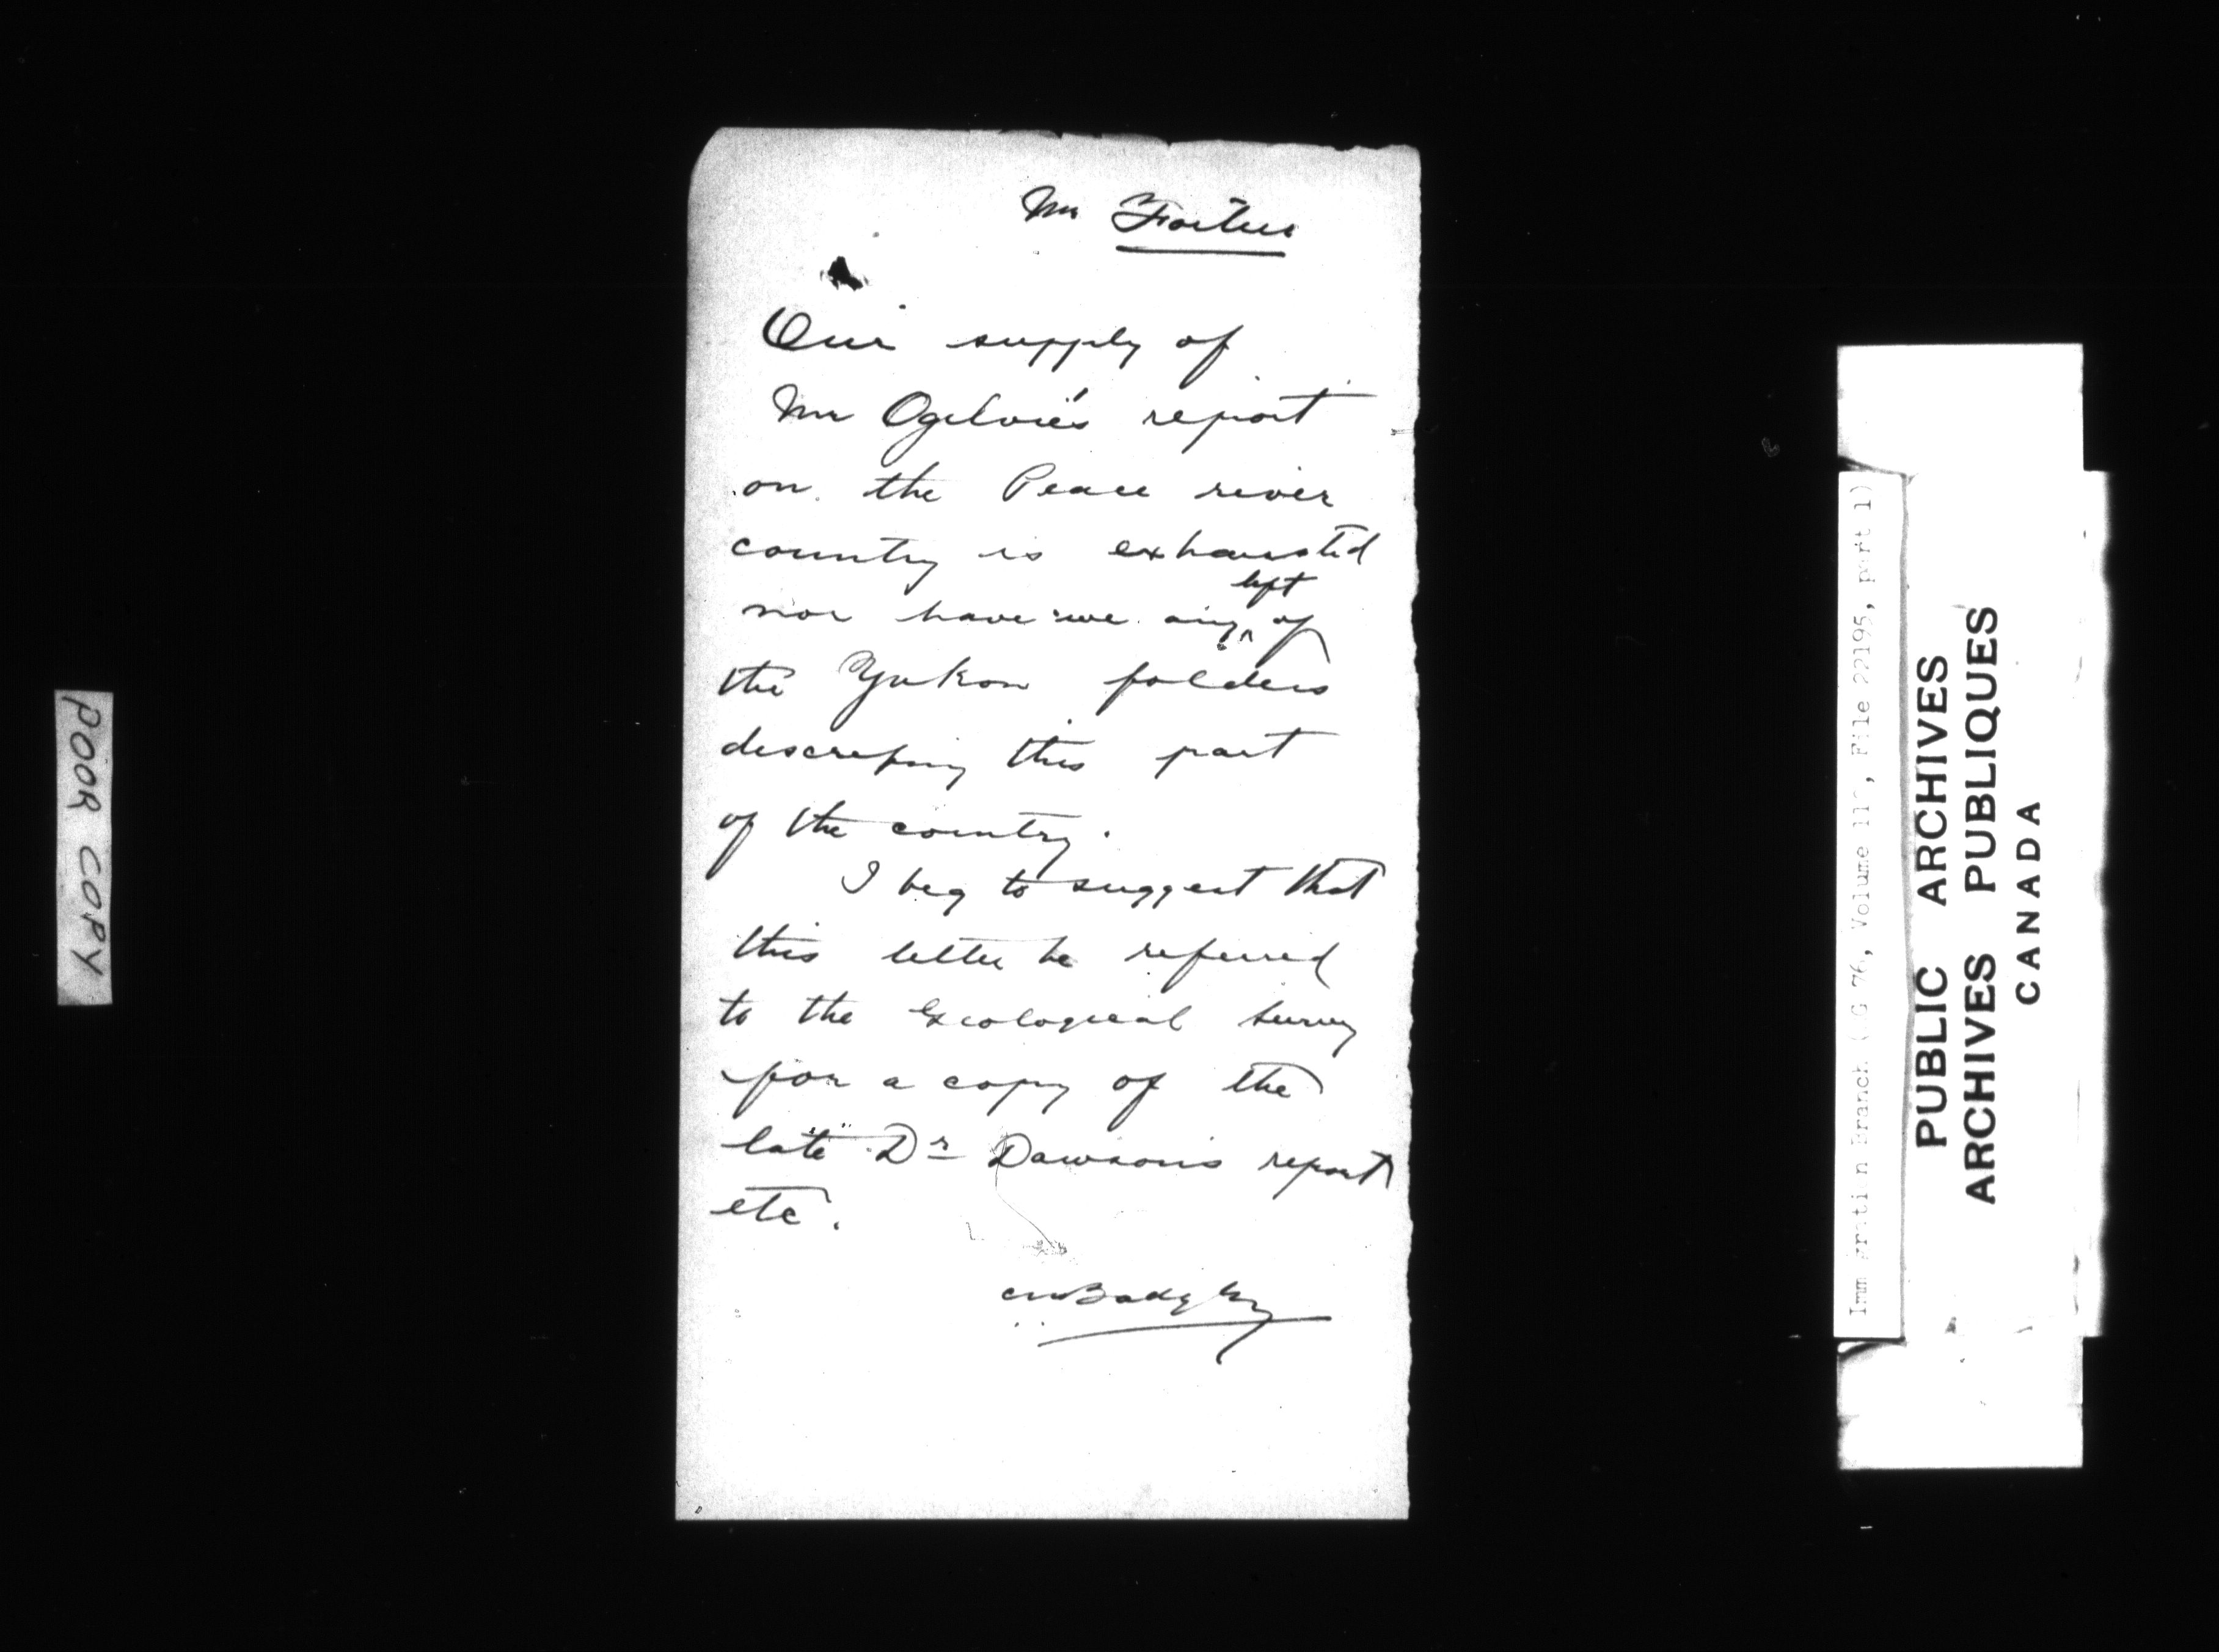 Mr
Our supply of
Mr Ogilvie's report
on the Peace river
country is exhausted
nor have we any left of
the Yukon folders
descriping this part
of the country.
I beg to suggest that
this letter be referred
to the Geological Survey
for a copy of the
late Dr Dawson's report
etc.
POOR COPY
Branch (RG 76, Volume, File 22195, part 1)
PUBLIC ARCHIVES
ARCHIVES PUBLIQUES
CANADA